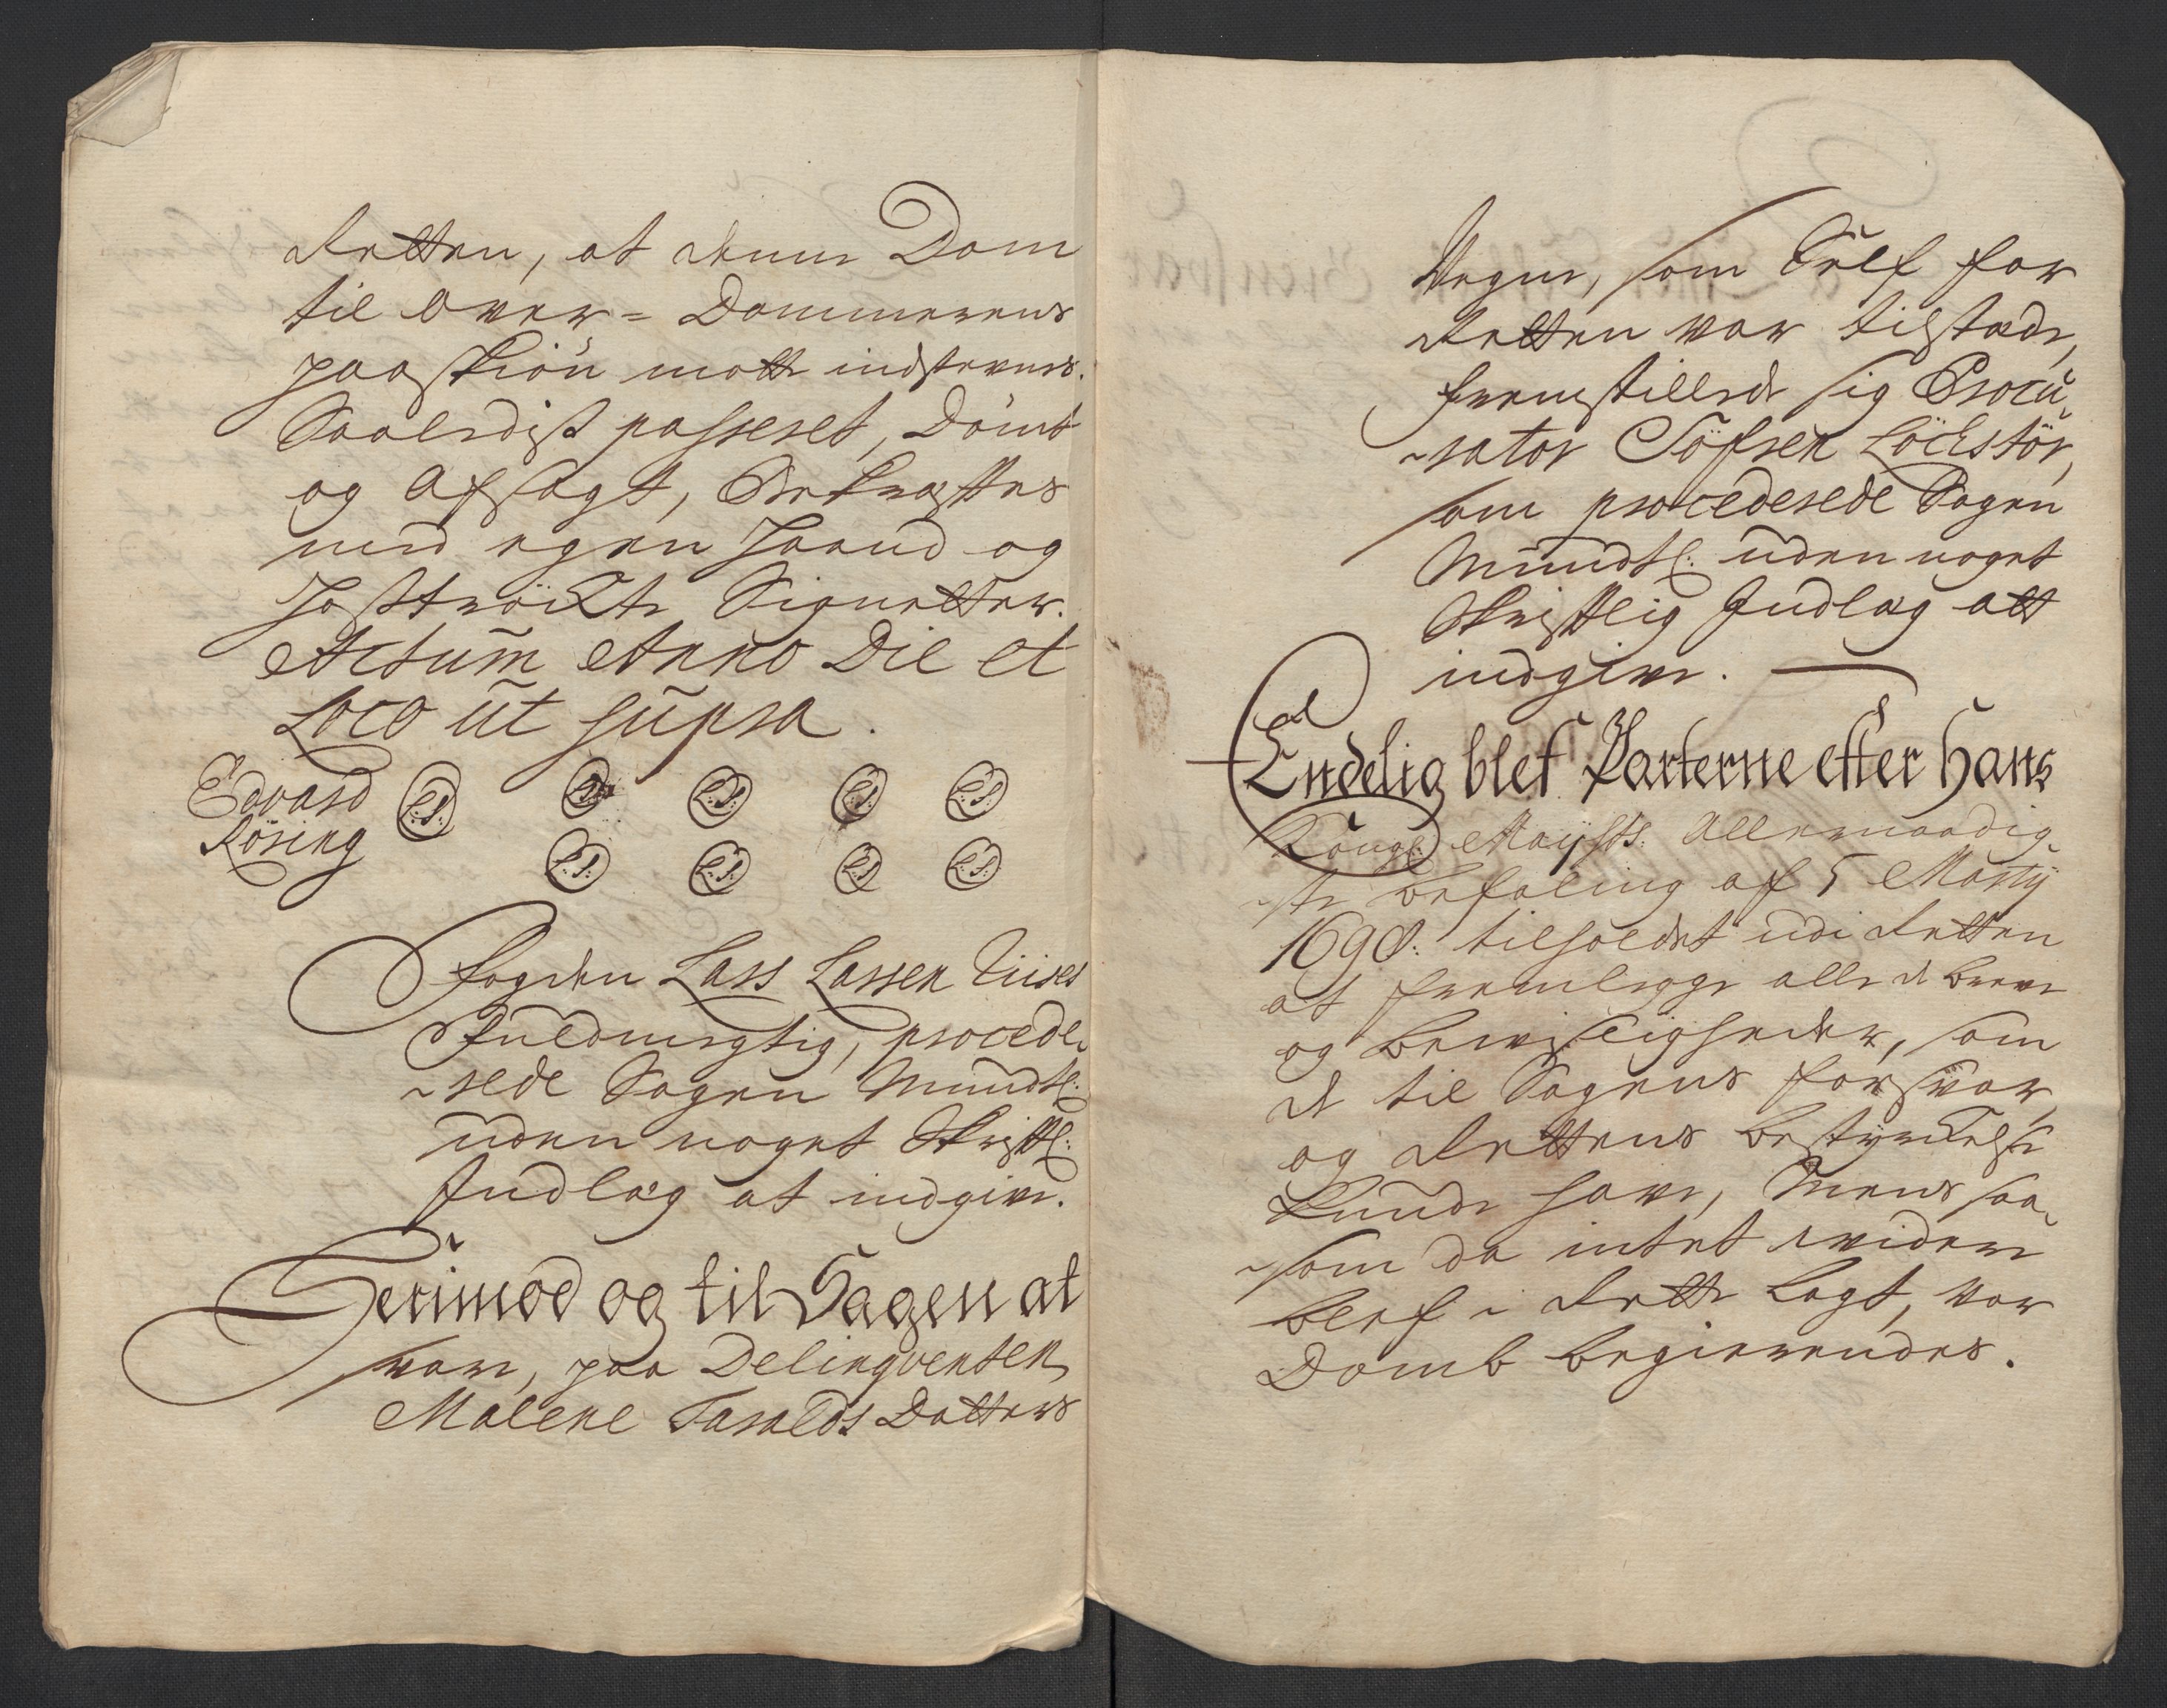 Retten, at denne Dom
til Over= Dommerens
paaskiön motte indstevnes.
Saaledist passeret, Dömt
og Afsagt, Bekræfftes
med egen Haand og
Hoströckte Signetter.
Actum Anno Die et
Loco ut supra.
Edvard
Rösing L.S. L.S. L.S. L.S. L.S.
L.S. L.S. L.S. L.S.
Fogden Lass Lassen Riises
Fuldmegtig, procede-
-rede Sagen Mundtl:
uden noget Skriftl:
Indlæg at indgive.
Herimod og til Sagen at
svare, paa Delinqventen
Malene Taralds Datters
Vegne, som Self for
Retten var tilstæde,
fremstillede sig Procu-
-rator Töfsen Löchstör,
som procederede Sagen
Mundtl: uden noget
Skrifftlig Indlæg att
indgive. —
Endelig blef Parterne efter Hans
Kongl: Maysts: Allernaadig-
-ste befaling af 5 Martij
1690: tilholdet udi Retten
at fremlegge alle de breve
og beviisligheder, som
de til Sagens forsvar,
og Rettens bestyrckelse
kunde have, Mens saa-
-som da intet widere
blef i Rette lagt, var
Domb begierendes.